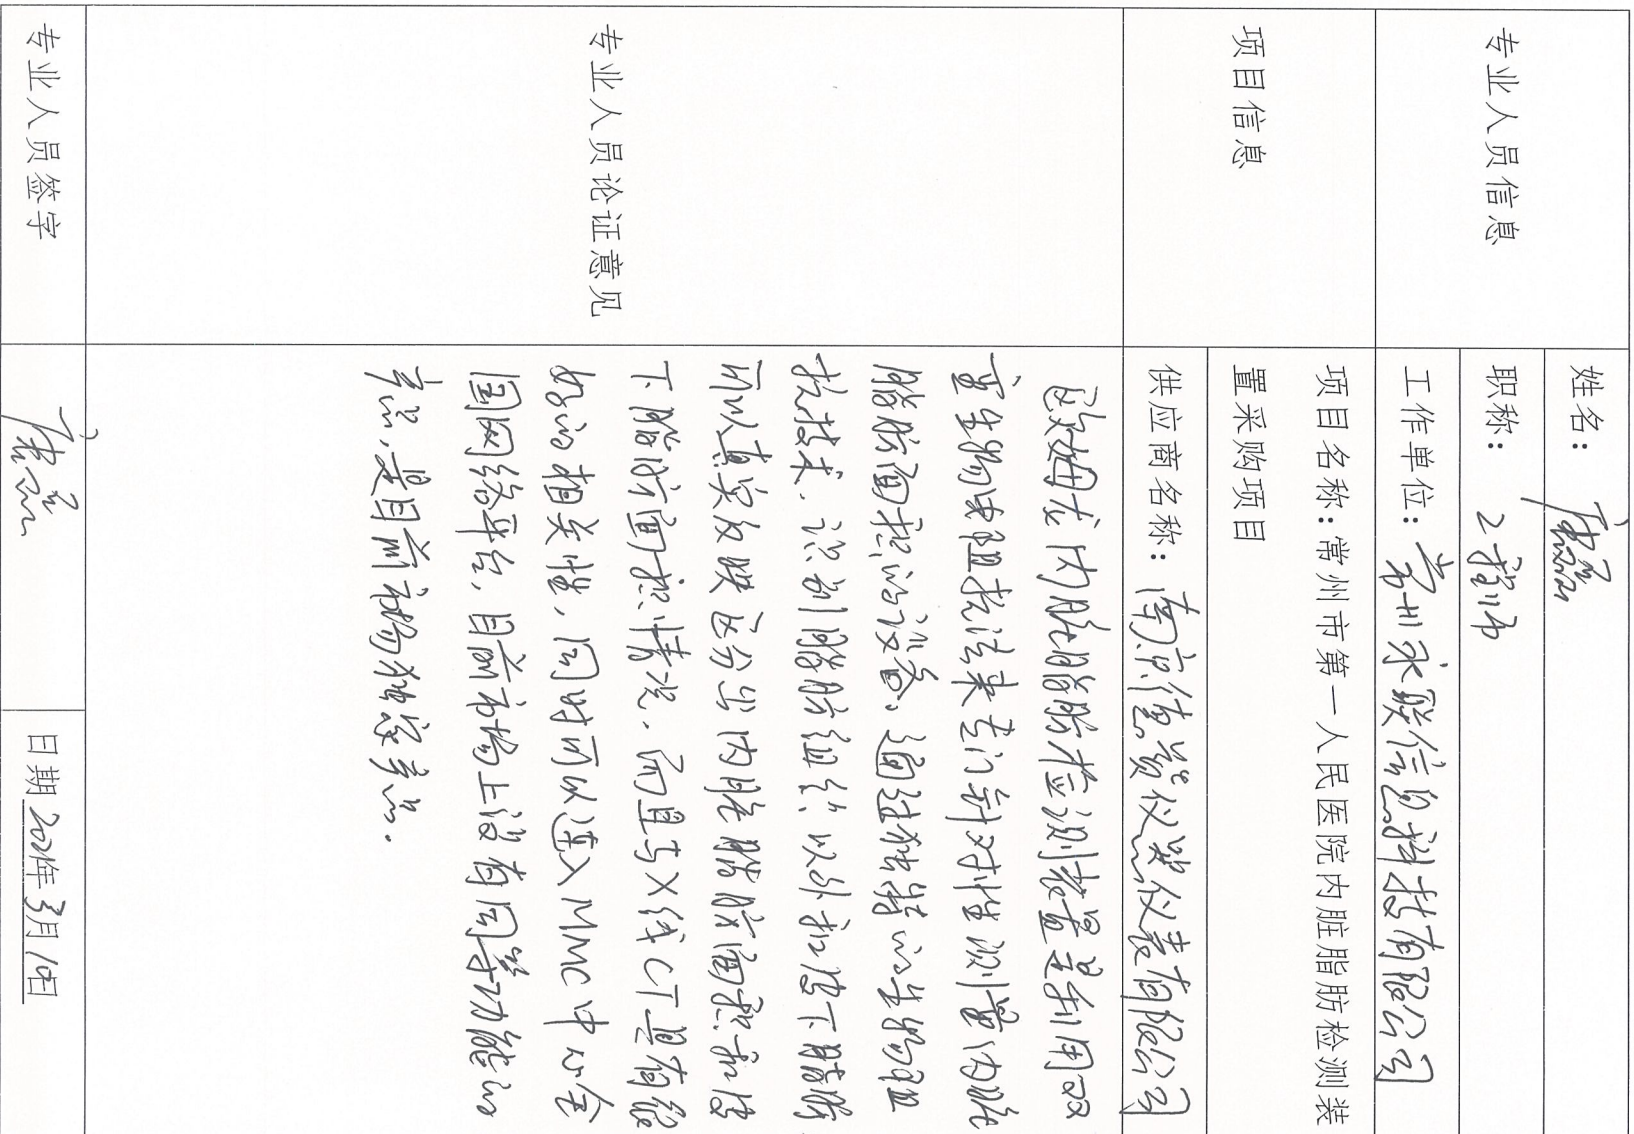 专业人员信息
姓名：
职称：工程师
工作单位：常州永联信息科技有限公司
项目信息
项目名称：常州市第一人民医院内脏脂肪检测装
置采购项目
供应商名称：南京德贺仪器仪表有限公司
专业人员论证意见
欧姆龙内脏脂肪检测装置是利用双
重生物电阻抗法来专门针对性测量内脏
脂肪面积的设备，通过独特的生物阻
抗技术，识别脂肪组织以外和皮下脂肪
可以真实反映区分出内脏脂肪面积和皮
下脂肪面积情况，而且与X线CT具有很
好的相关性，同时可以连入MMC中心全
国网络平台，目前市场上没有同等功能的
产品，是目前市场独家产品．
专业人员签字
日期 2021年3月1日